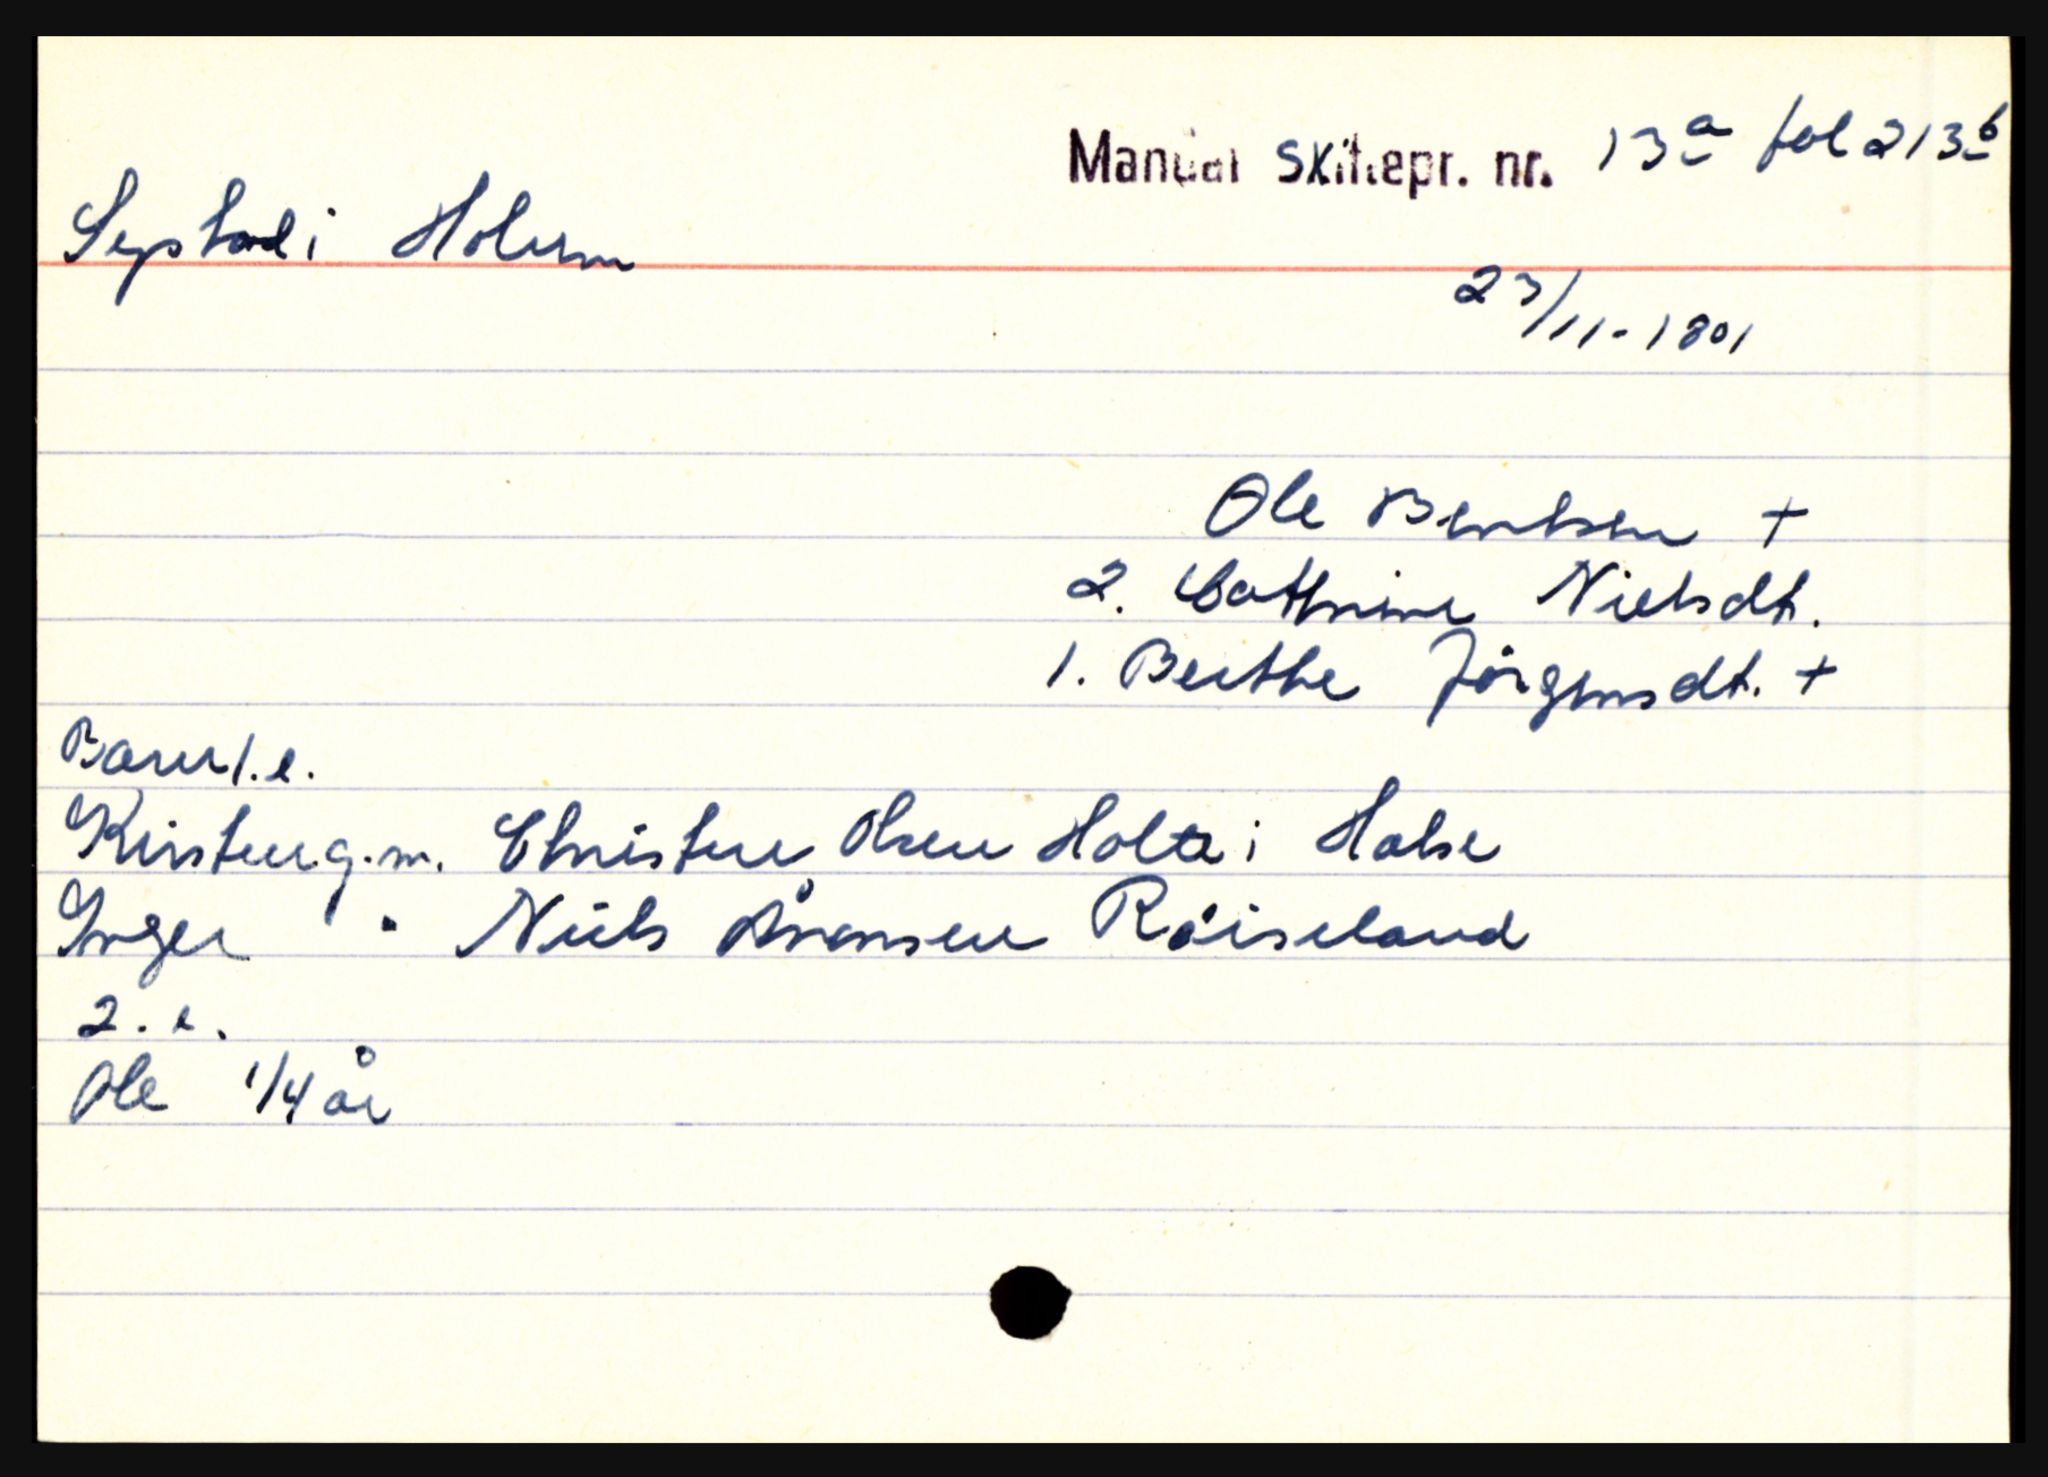 Manual Skiftepr. nr. 13a fol 213b
Systad i Holum
23/11-1801
Ole Berntsen +
2. Cathrine Nielsdt.
1. Berthe Jörgensdt. +
Barn 1. e.
Kirsten g.m. Christen Olsen Holte i Halse
Inger " Niels Ånonsen Röiseland
2. e.
Ole 1/4 år